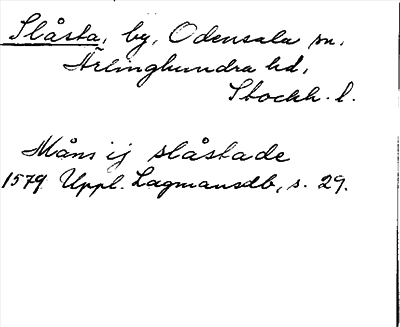 Slåsta, by, Odensala sn,
Ärlinghundra hd,
Stockh. l.
Måns ij slåstade
1579 Uppl. Lagmansdb, s. 29.